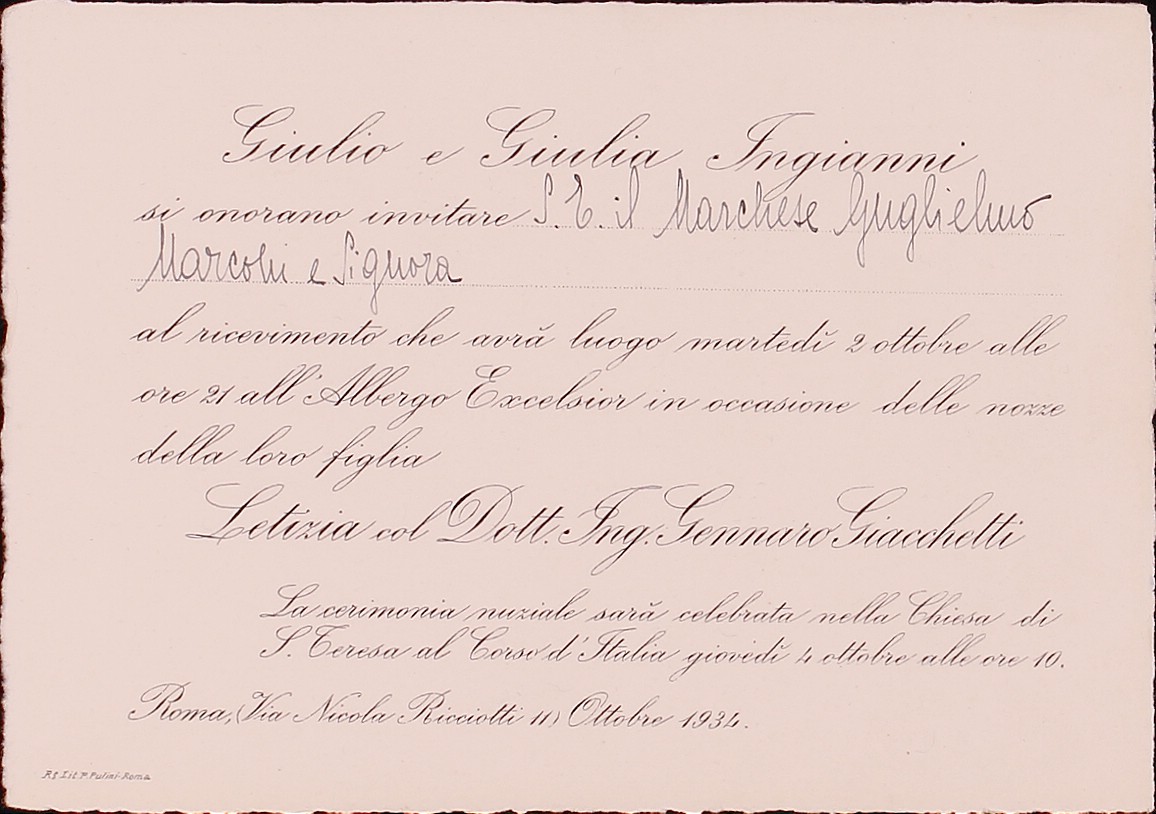 Giulio e Giulia Ingianni
si onorano invitare S. E. il Marchese Guglielmo
Marconi e Signora
al ricevimento che avrà luogo martedì 2 ottobre alle
ore 21 all'Albergo Excelsior in occasione delle nozze
della loro figlia
Letizia col Dott. Ing. Gennaro Giacchetti
La cerimonia nuziale sarà celebrata nella Chiesa di
S. Teresa al Corso d'Italia giovedì 4 ottobre alle ore 10.
Roma, (Via Nicola Ricciotti 11) Ottobre 1934.
Lit. P. Pulini-Roma